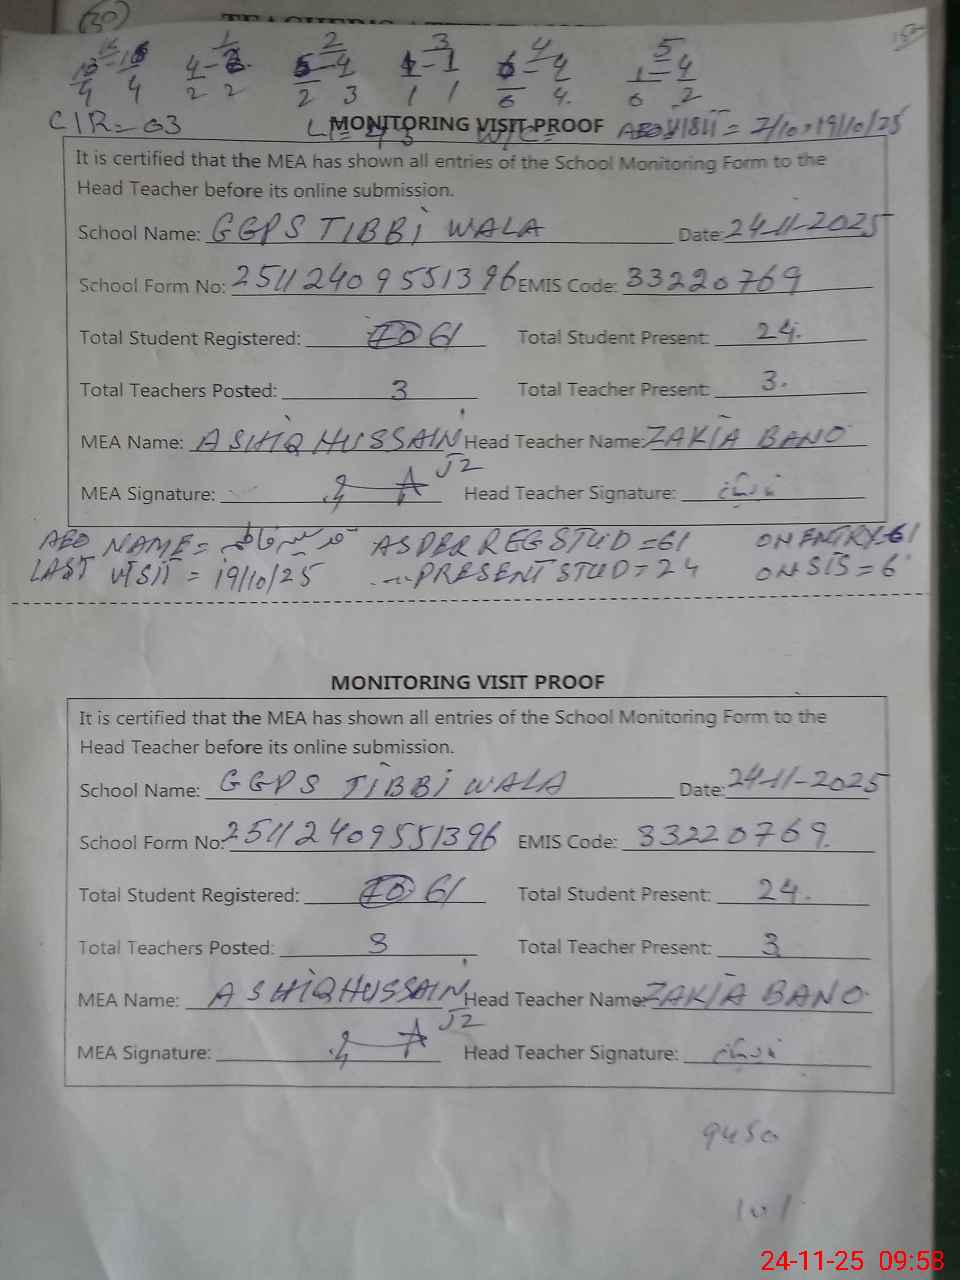 (30)
K 1 2 3 4 5
4-8 5-4 1-1 6-4 1-4
4 4 2 2 2 3 1 1 6 4. 6 2
CIR = 03
MONITORING VISIT PROOF AEO VISIT = 7/10, 19/10/25
It is certified that the MEA has shown all entries of the School Monitoring Form to the
Head Teacher before its online submission.
School Name: GGPS TIBBI WALA Date: 24-11-2025
School Form No: 25112409551396 EMIS Code: 33220769
Total Student Registered: 61 Total Student Present: 24.
Total Teachers Posted: 3 Total Teacher Present: 3.
MEA Name: ASHIQ HUSSAIN Head Teacher Name: ZAKIA BANO
MEA Signature: Head Teacher Signature:
AEO NAME = AS PER REG STUD = 61 ON ENTRY = 61
LAST VISIT = 19/10/25 PRESENT STUD = 24 ON SIS = 6
MONITORING VISIT PROOF
It is certified that the MEA has shown all entries of the School Monitoring Form to the
Head Teacher before its online submission.
School Name: GGPS TIBBI WALA Date: 24-11-2025
School Form No: 25112409551396 EMIS Code: 33220769.
Total Student Registered: 61 Total Student Present: 24.
Total Teachers Posted: 3 Total Teacher Present: 3
MEA Name: ASHIQ HUSSAIN Head Teacher Name: ZAKIA BANO.
MEA Signature: Head Teacher Signature:
9450
24-11-25 09:58